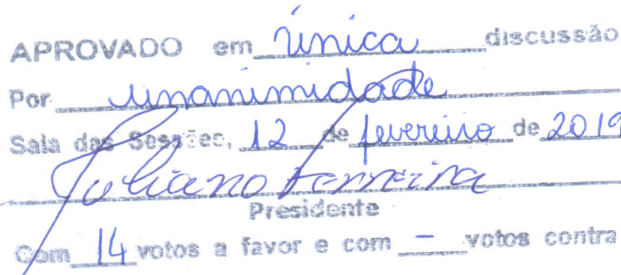 APROVADO em única discussão
Por unanimidade
Sala das Sessões, 12 de fevereiro de 2019
Juliano Ferreira
Presidente
Com 14 votos a favor e com - votos contra